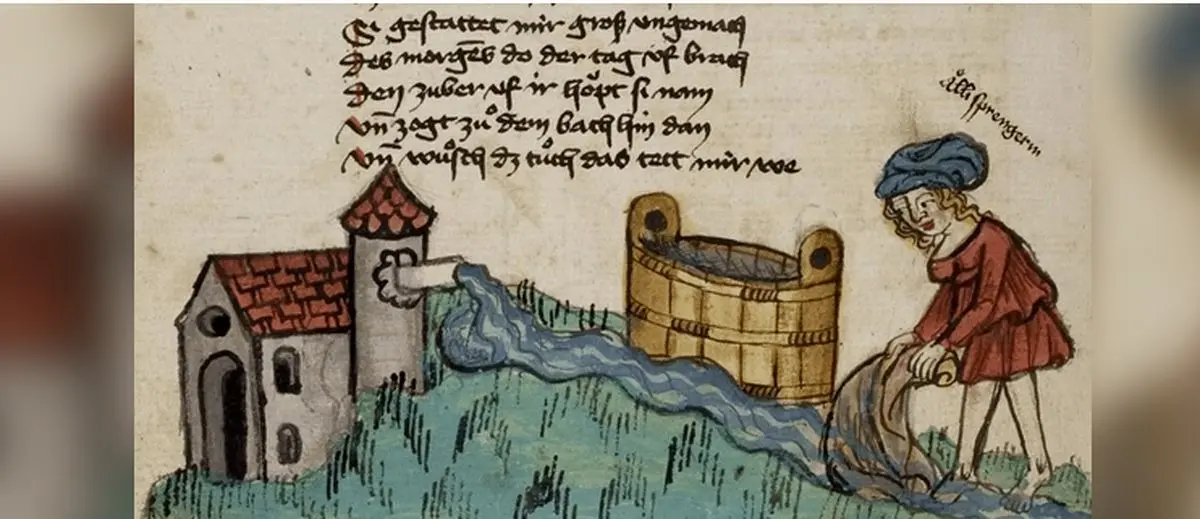 Si gestattet mir groß ungemach
des morgēs do der tag vf brach
den zuber vf ir hőpt si nam
vn̄ zogt zů dem bach hin dan
vn̄ wůsch dz tůch das tett mir we
älli sprengerin